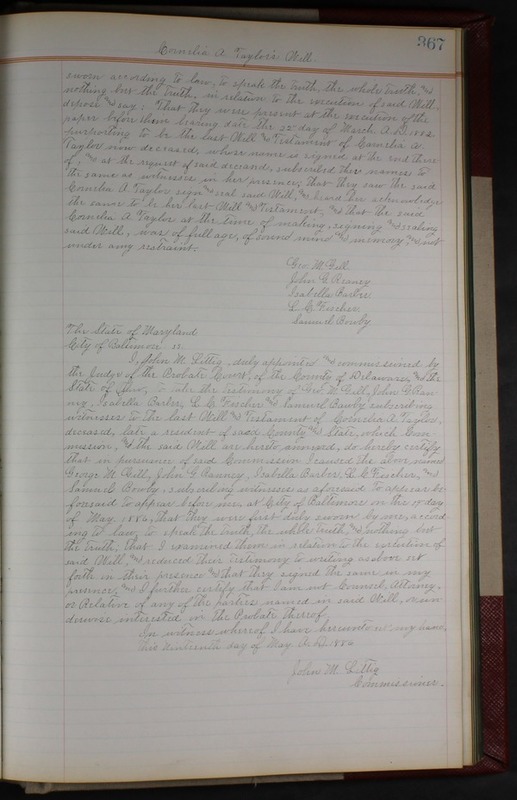 367
Cornelia A Taylor's Will.
sworn according to law, to speak the truth, the whole truth, and
nothing but the truth, in relation to the execution of said Will,
depose and say: That they were present at the execution of the
paper before them bearing date the 22nd day of March, A.D. 188
purporting to be the last Will and Testament of Cornelia A.
Taylor now deceased, whose name is signed at the end there
of, and at the request of said decead, subscribed their names to
the same as witnesses in her presence; that they saw the said
Cornelia A Taylor sign and seal said Will, and heard her acknowledge
the same to be her last Will and Testament, and that the said
Cornelia A Taylor at the time of making, signing and sealing
said Will, was of full age, of sound mind and memory, and not
under any restraint.
Geo. M. Gill
John G. Reaney
Isabella Barber
L. C. Fischer
Samuel Bowby.
The State of Maryland
City of Baltimore ss.
I, John M. Littig, duly appointed and commissioned by
the Judge of the Probate Court, of the County of Delaware, and the
State of Ohio, to take the testimony of Geo. M. Gill, John G. Ran
ey, Isabella Barber, L. C. Fischer and Samuel Bowby subscribing
witnesses to the last Will and Testament of Cornelia A Taylor,
deceased, late a resident of said County and State, which Com
mission, and the said Will are hereto annexed, do hereby certify
that in pursuance of said Commission I caused the above named
George M. Gill, John G. Ranney, Isabella Barber, L. C. Fischer, and
Samuel Bowby, subscribing witnesses as aforesaid to appear be
foresaid to appear before me, at City of Baltimore on the 19 day
of May 1886, that they were first duly sworn by me, accord
ing to law, to speak the truth, the whole truth, and nothing but
the truth; that I examined them in relation to the execution of
said Will, and reduced their testimony to writing as above set
forth in their presence and that they signed the same in my
presence, and I further certify that I am not Counsel, Attorney,
or Relative of any of the parties named in said Will, or in
derwise interested in the Probate thereof.
In witness whereof I have hereunto set my hand,
this nineteenth day of May A.D. 1886
John M. Littig
Commissioner.